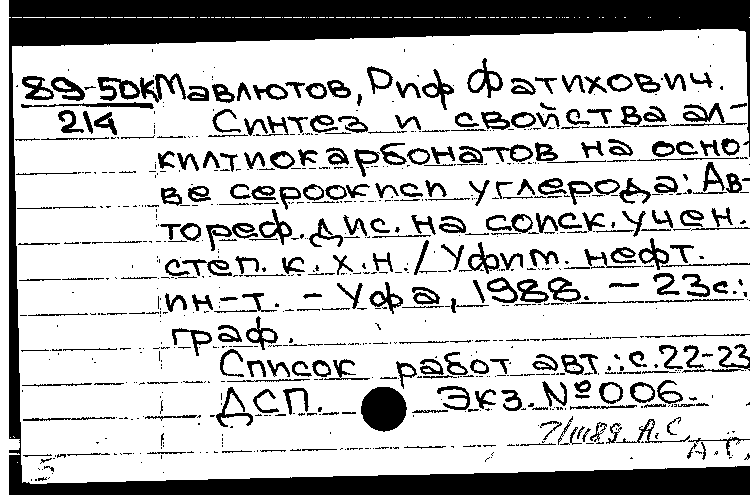 89-50К Мавлютов, Риф Фатихович.
214 Синтез и свойства ал-
килтиокарбонатов на осно-
ве сероокиси углерода: Ав-
тореф. дис. на соиск. учен.
степ. к. х. н. / Уфим. нефт.
ин-т. - Уфа, 1988. - 23с.:
граф.
Список работ авт.: с. 22-23
ДСП. Экз. № 006.
7/III89. А.С.
А.С.
5